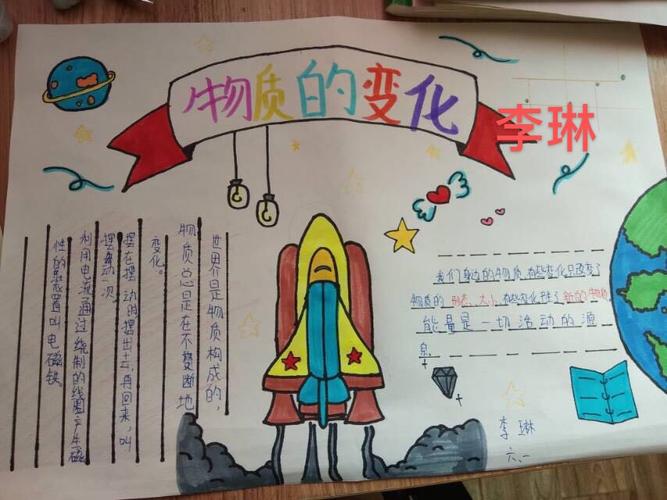 物质的变化
李琳
世界是物质构成的，
物质总是在不断地
变化。
摆在摆动时摆出去，再回来，叫
摆动一次
利用电流通过绕制的线圈产生磁
性的装置叫电磁铁
我们身边的物质，有些变化只改变了
物质的形态、大小，有些变化产生了新的物质，
能量是一切活动的源
李琳
六、一